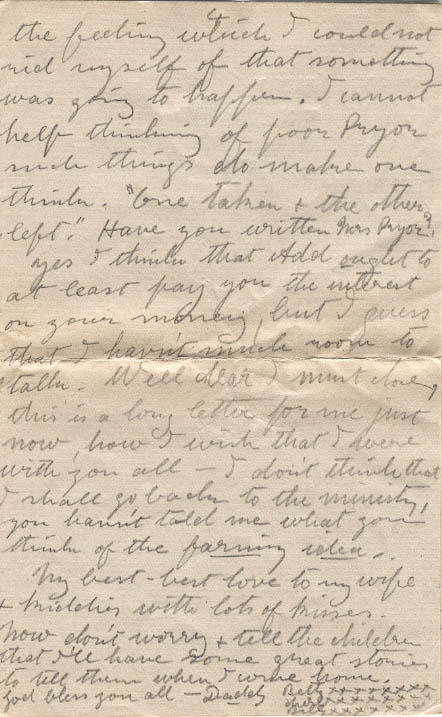 the feeling which I could not
rid myself of that something
was going to happen. I cannot
help thinking of poor Pryor
such things do make one
think. "One taken + the other
left." Have you written Mrs Pryor?
Yes I think that Add ought to
at least pay you the interest
on your money, but I guess
that I havn't much room to
talk. Well dear I must close,
this is a long letter for me just
now, how I wish that I were
with you all — I don't think that
I shall go back to the ministry,
you havn't told me what you
think of the farming idea.
My best-best love to my wife
+ kiddies with lots of kisses.
Now don't worry + tell the children
that I'll have some great stories
to tell them when I come home.
God bless you all — Daddy
Betty xxxxxxxx
xxxxxxxx
Billy xxxxxxxx